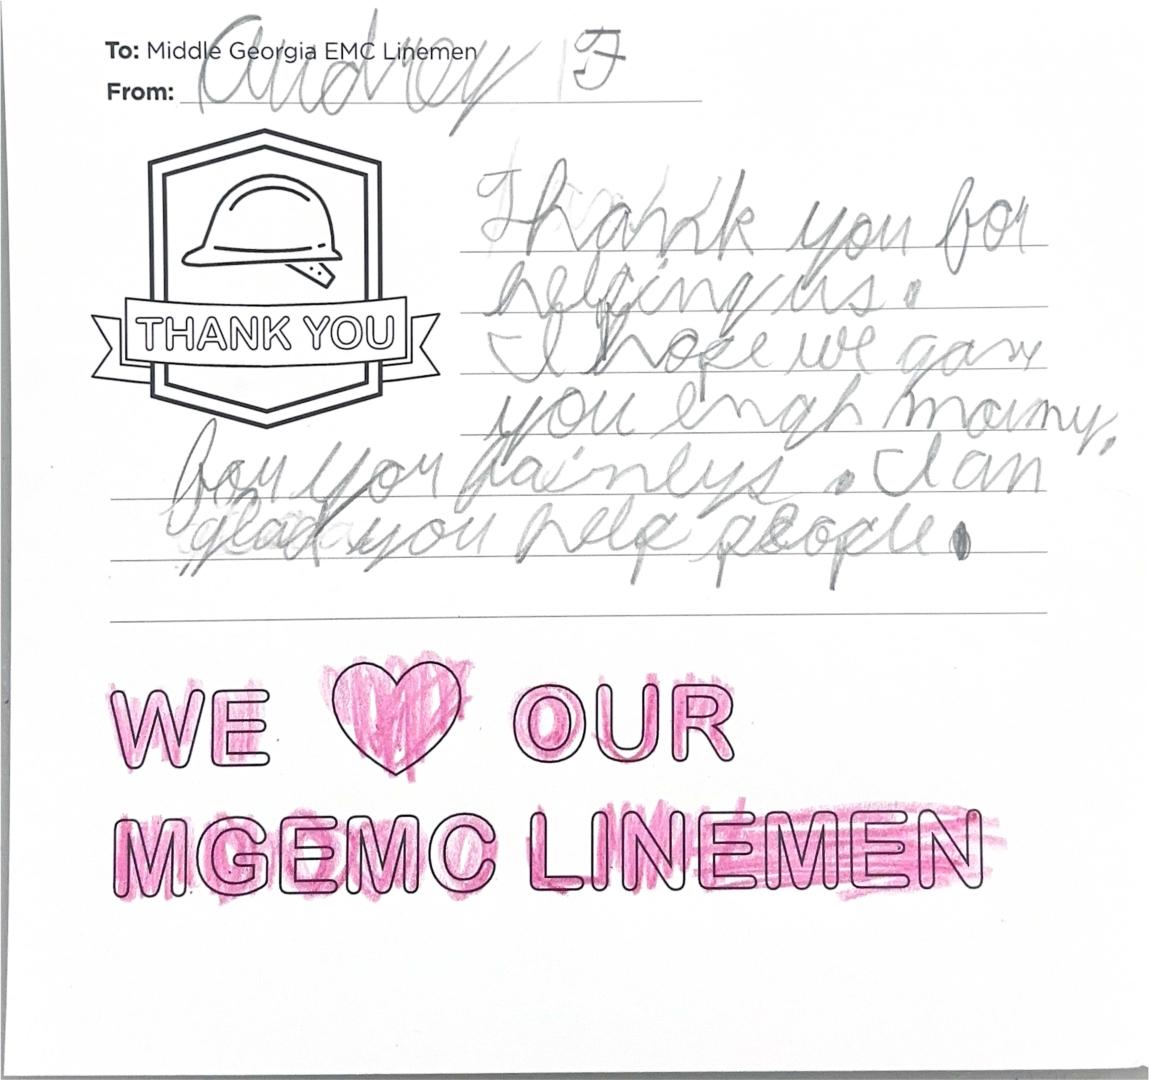 To: Middle Georgia EMC Linemen
From: Audrey F
THANK YOU
Thank you for
helping us.
I hope we gave
you engh mainy,
for your fainleys. I am
glad you help people.
WE OUR
MGEMC LINEMEN